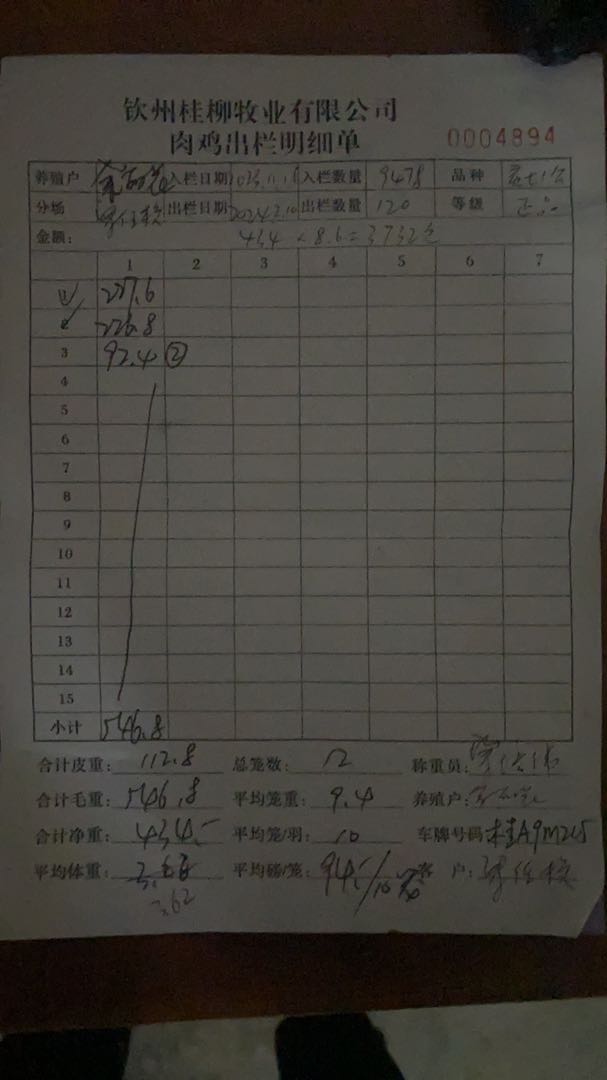 钦州桂柳牧业有限公司
肉鸡出栏明细单 0004894
养殖户 入栏日期 入栏数量 9478 品种
分场 出栏日期 出栏数量 120 等级 正品
金额: 434 × 8.6 = 3732元
1 2 3 4 5 6 7
1 227.6
2 226.8
3 92.4 ②
4
5
6
7
8
9
10
11
12
13
14
15
小计 546.8
合计皮重: 112.8 总笼数: 12 称重员:
合计毛重: 546.8 平均笼重: 9.4 养殖户:
合计净重: 434.- 平均笼/羽: 10 车牌号码 桂A9M265
平均体重: 平均磅/笼: 客户:
3.62